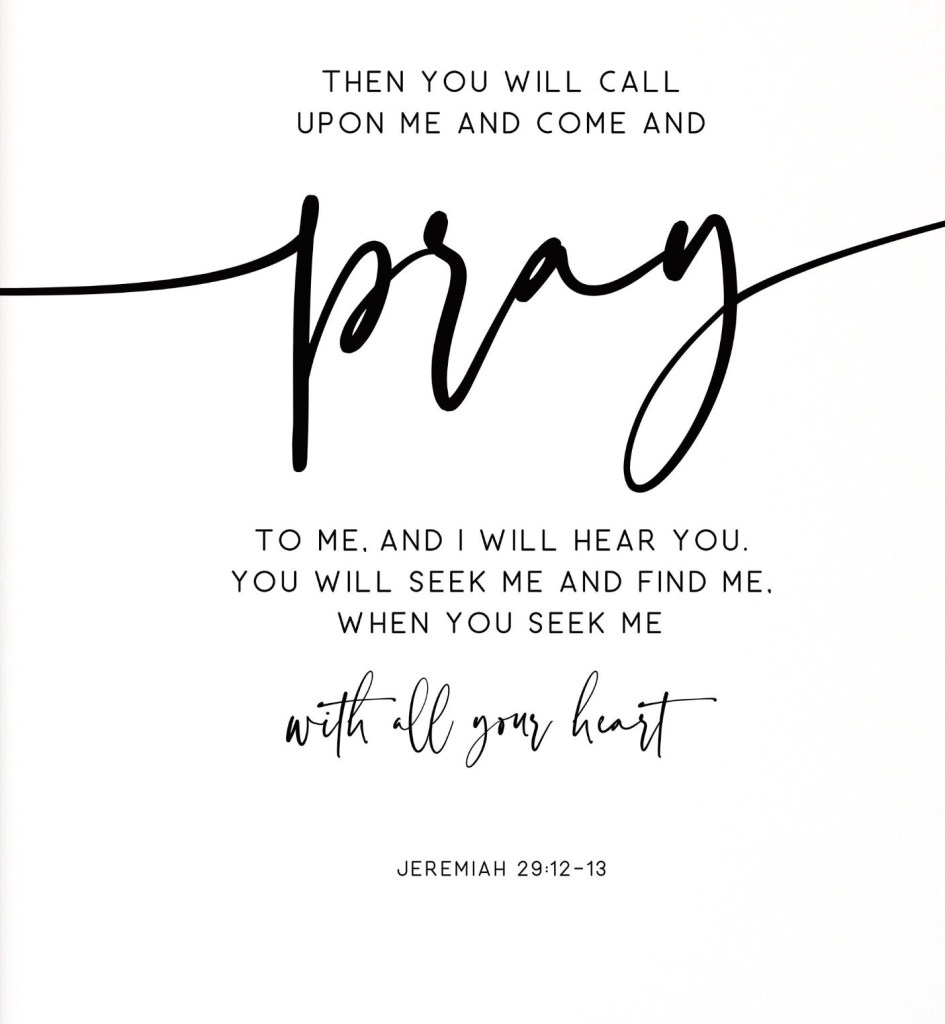 THEN YOU WILL CALL
UPON ME AND COME AND
pray
TO ME, AND I WILL HEAR YOU.
YOU WILL SEEK ME AND FIND ME,
WHEN YOU SEEK ME
with all your heart
JEREMIAH 29:12-13